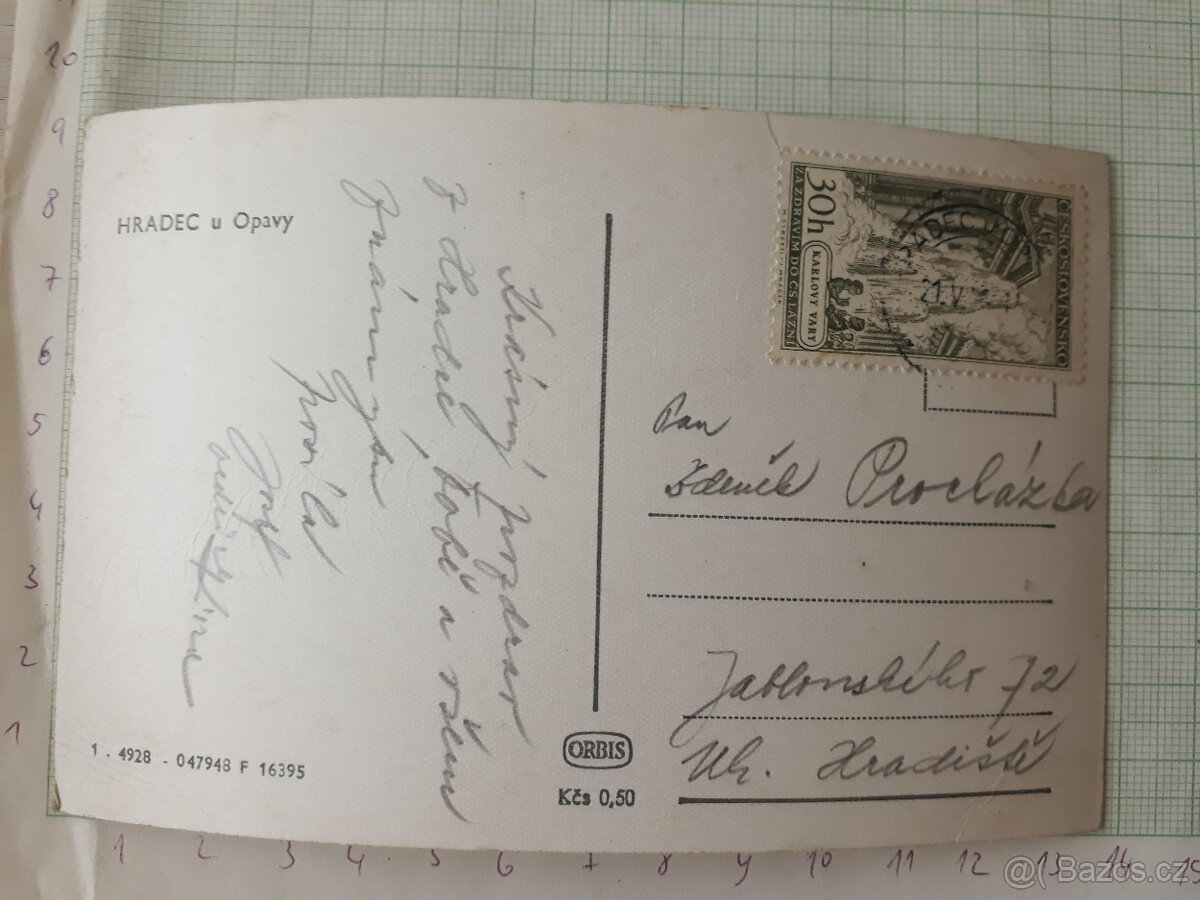 HRADEC u Opavy
Krásný pozdrav
z Hradce, Tobě a všem
známým
posílá
Josef
1 . 4928 - 047948 F 16395
ORBIS
Kčs 0,50
ČESKOSLOVENSKO
30h
KARLOVY VARY
ZA ZDRAVÍM DO ČS. LÁZNÍ
HRADEC U
21.V
Pan
Zdeněk Procházka
Jablonského 72
Uh. Hradiště
10
9
8
7
6
5
4
3
2
1
1 2 3 4 5 6 7 8 9 10 11 12 13 14 15
@( Bazos.cz